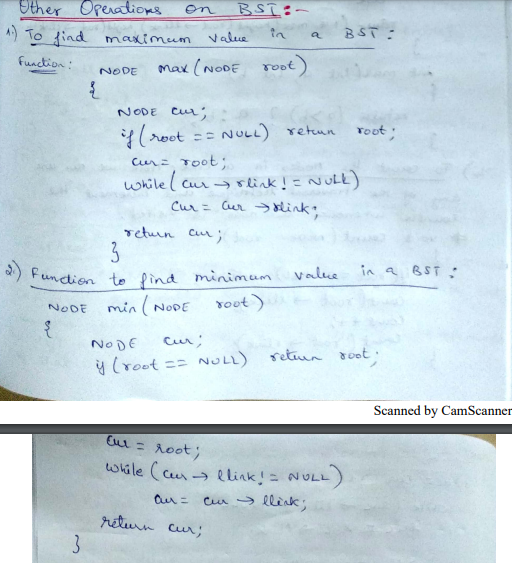 Other Operations on BST:-
1) To find maximum value in a BST :
Function: NODE max (NODE root)
{
NODE cur;
if (root == NULL) return root;
cur = root;
while (cur → rlink != NULL)
cur = cur → rlink;
return cur;
}
2) Function to find minimum value in a BST :
NODE min (NODE root)
{
NODE cur;
if (root == NULL) return root;
Scanned by CamScanner
cur = root;
while (cur → llink != NULL)
cur = cur → llink;
return cur;
}